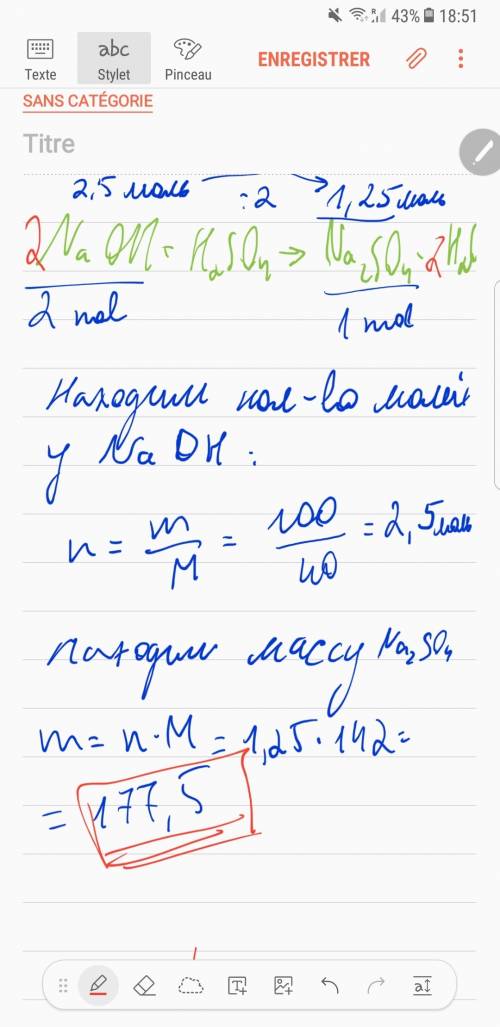 43% 18:51
Texte
abc
Stylet
Pinceau
ENREGISTRER
SANS CATÉGORIE
Titre
2,5 моль :2 1,25 моль
2NaOH + H₂SO₄ → Na₂SO₄ + 2H₂
2 mol 1 mol
Находим кол-во молей
у NaOH :
n = m/M = 100/40 = 2,5 моль
Находим массу Na₂SO₄
m = n · M = 1,25 · 142 =
= 177,5
T
a